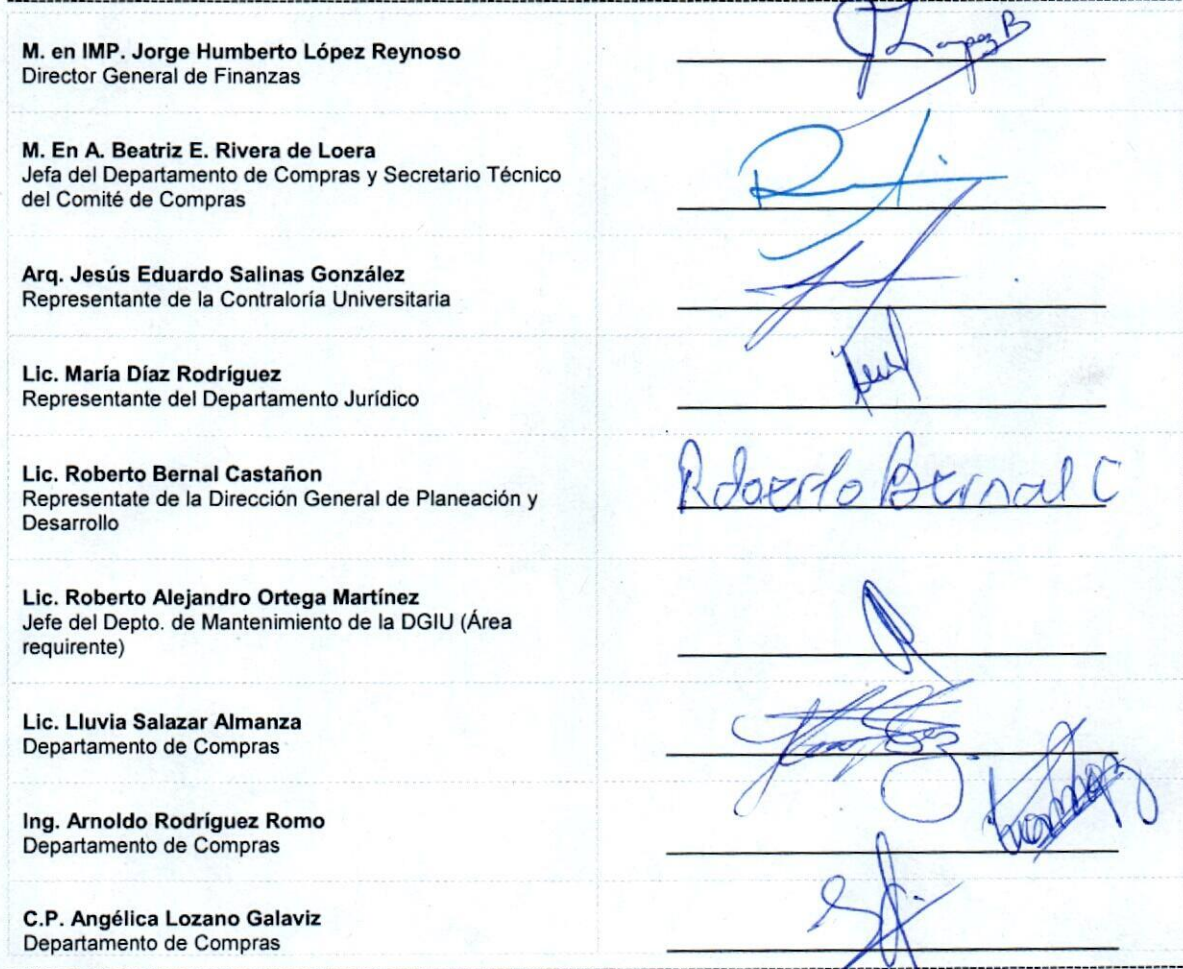 M. en IMP. Jorge Humberto López Reynoso
Director General de Finanzas
M. En A. Beatriz E. Rivera de Loera
Jefa del Departamento de Compras y Secretario Técnico
del Comité de Compras
Arq. Jesús Eduardo Salinas González
Representante de la Contraloría Universitaria
Lic. María Díaz Rodríguez
Representante del Departamento Jurídico
Lic. Roberto Bernal Castañon
Representate de la Dirección General de Planeación y
Desarrollo
Roberto Bernal C
Lic. Roberto Alejandro Ortega Martínez
Jefe del Depto. de Mantenimiento de la DGIU (Área
requirente)
Lic. Lluvia Salazar Almanza
Departamento de Compras
Ing. Arnoldo Rodríguez Romo
Departamento de Compras
C.P. Angélica Lozano Galaviz
Departamento de Compras